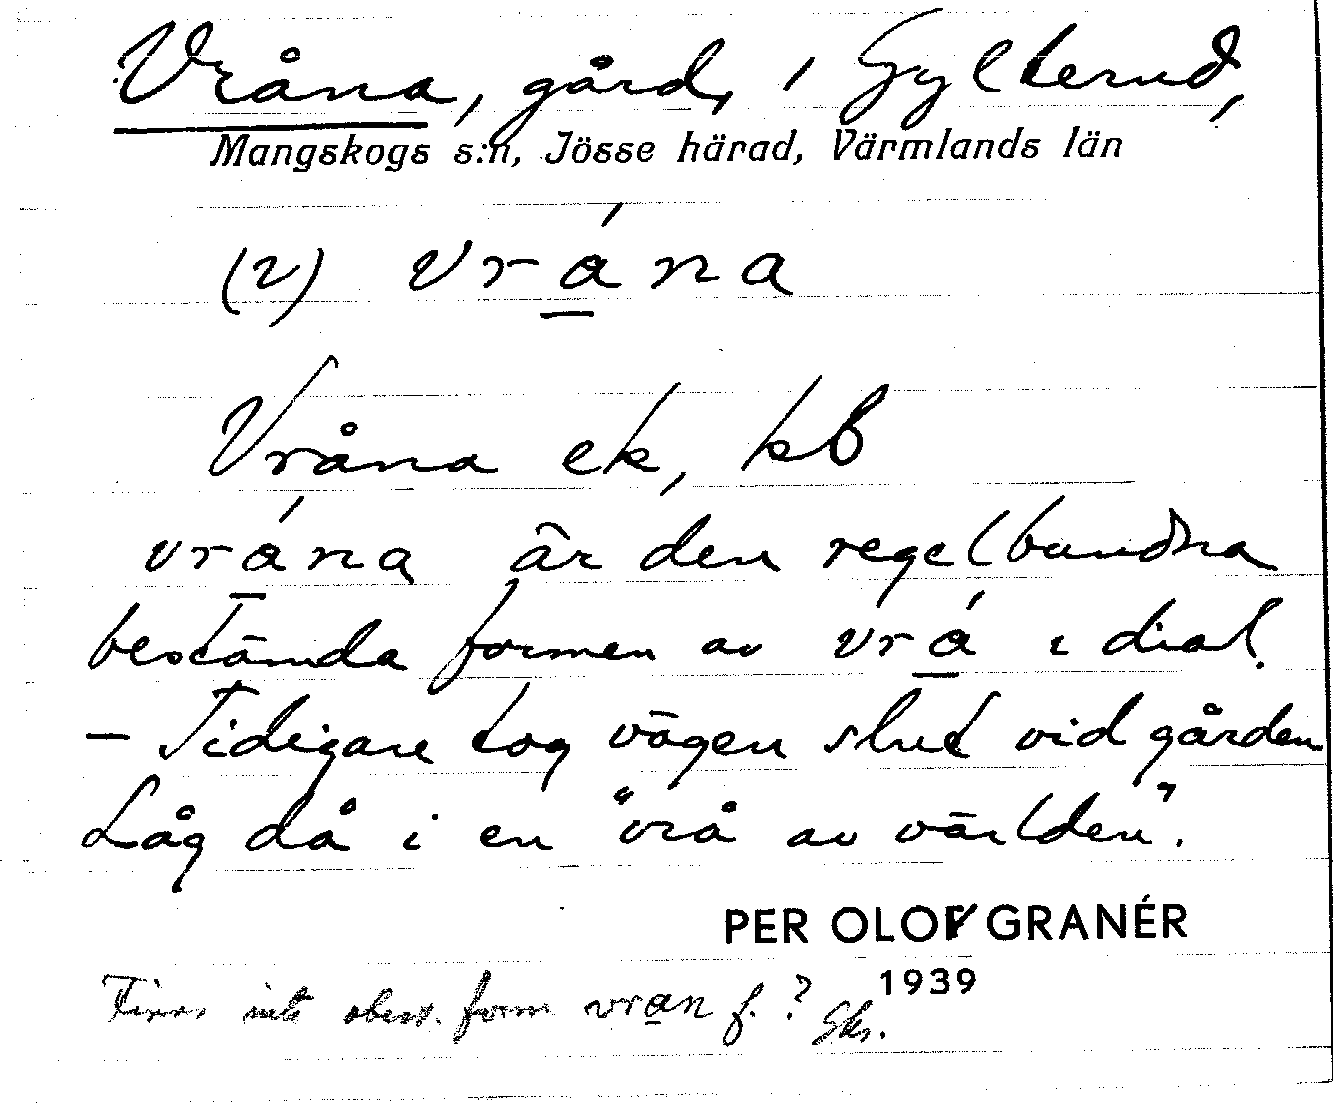 Vråna, gård, i Gylterud,
Mangskogs s:n, Jösse härad, Värmlands län
(2) vrána
Vråna ek, kb
vrána är den regelbundna
bestämda formen av vrá i dial.
- Tidigare tog vägen slut vid gården
Låg då i en "vrå av världen".
PER OLOF GRANÉR
1939
Finns inte obest. form vran f.?